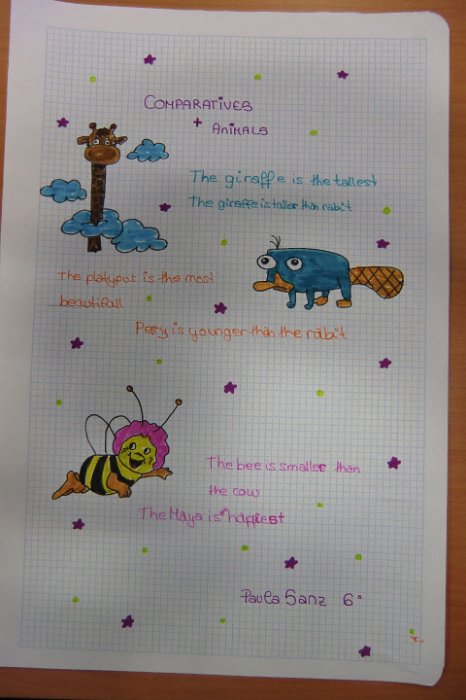 COMPARATIVES
+ ANIMALS
The giraffe is the tallest
The giraffe is taller than rabit
The platypus is the most
beautifull
Pery is younger than the rabit
The bee is smaller than
the cow
The Maya is happiest
Paula Sanz 6º